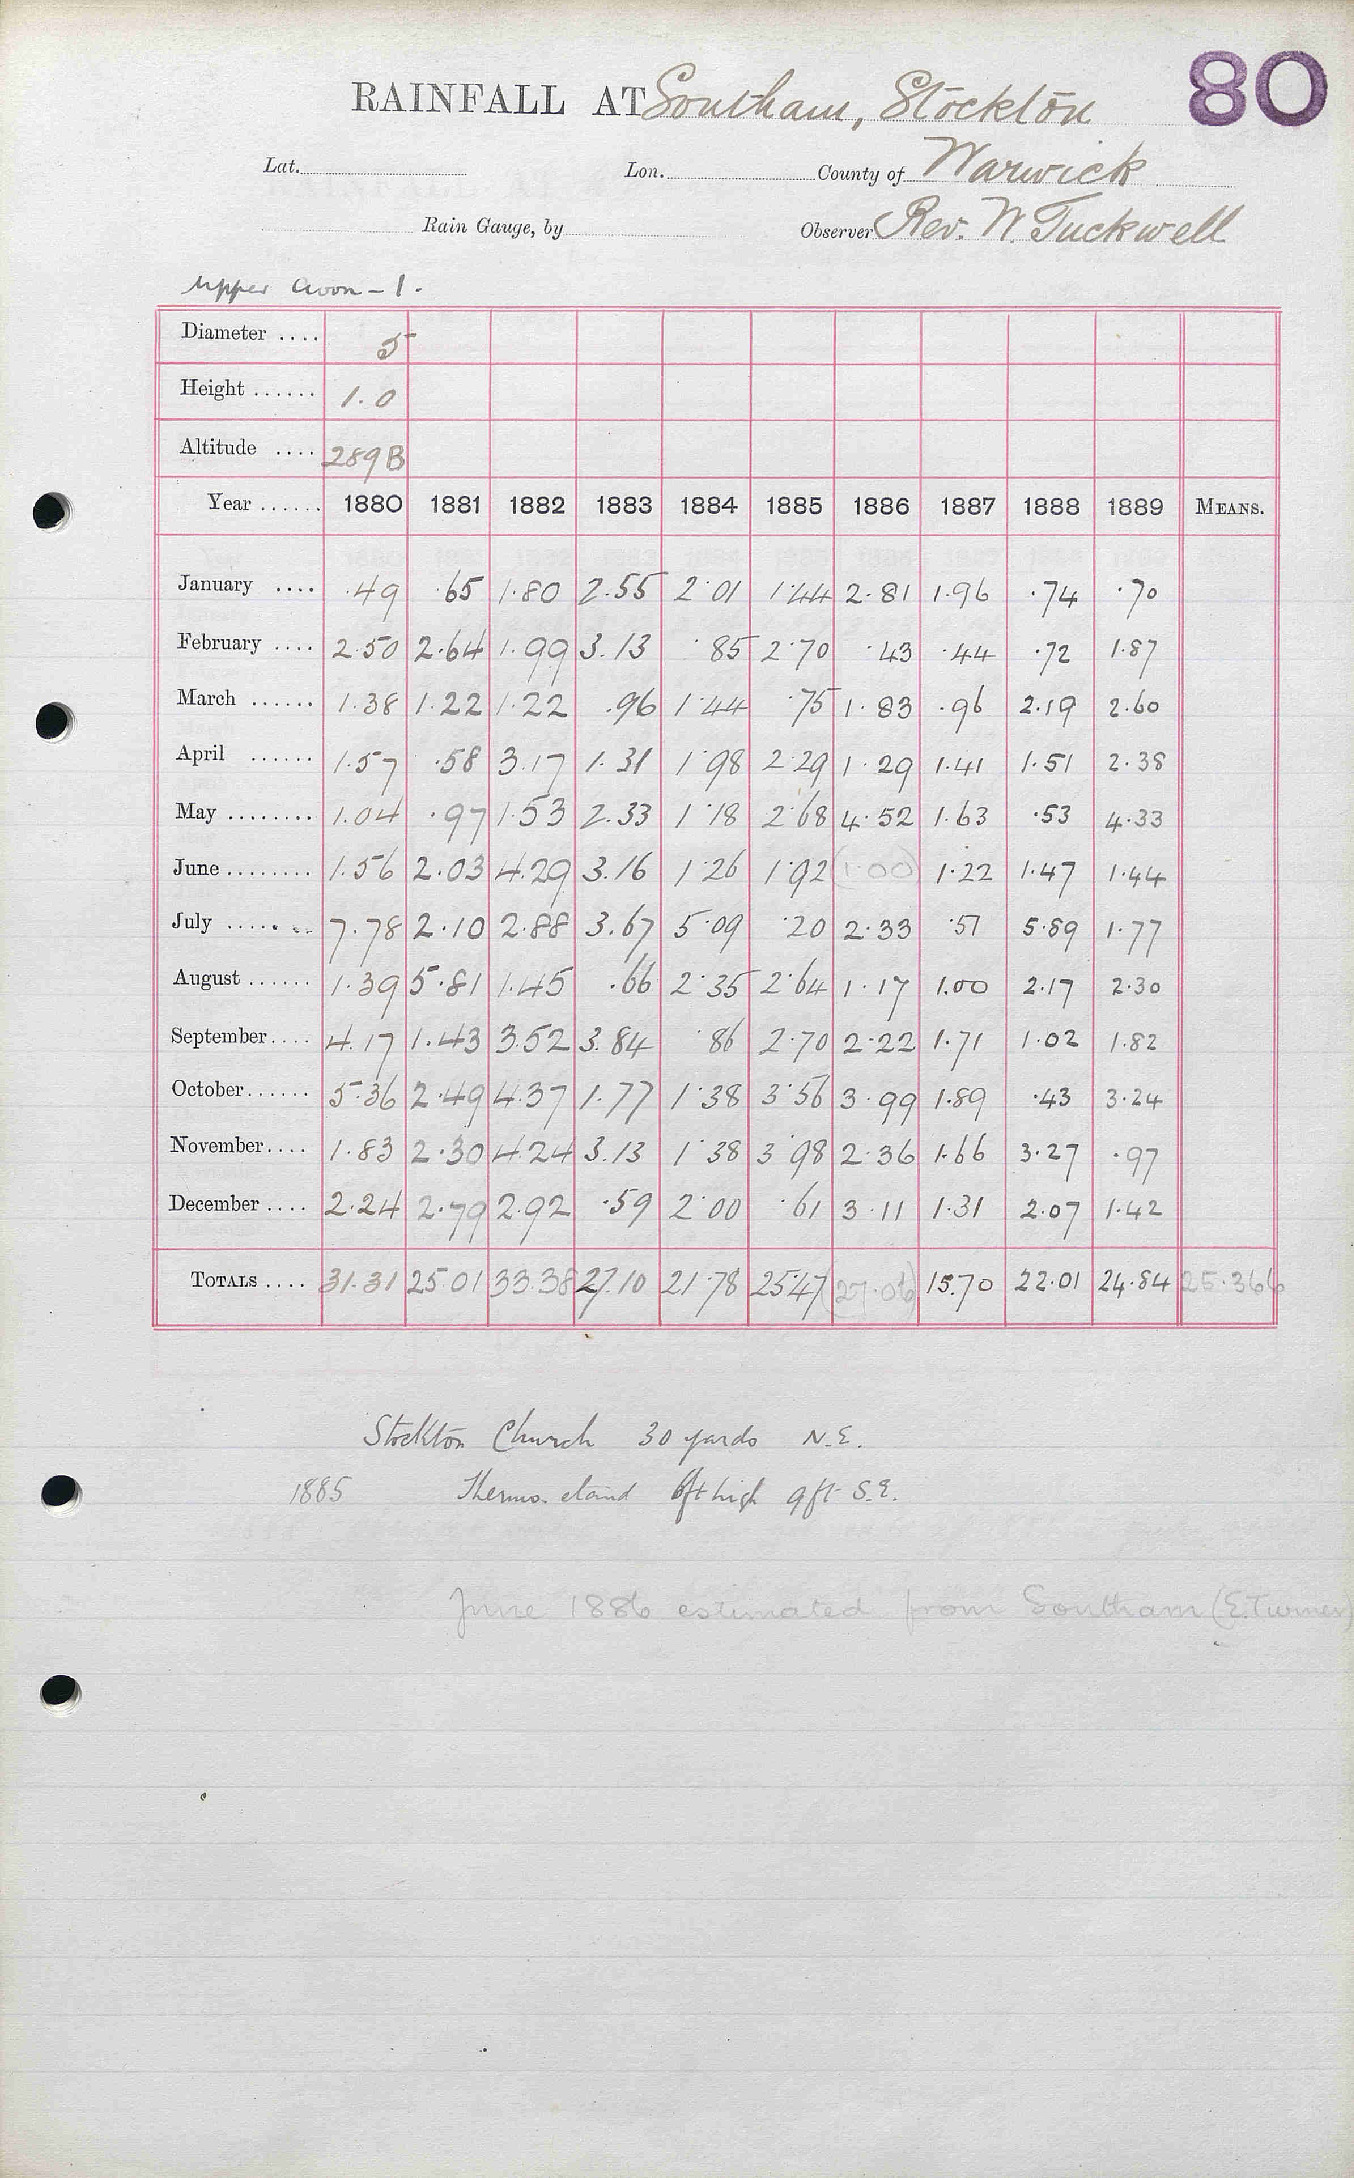 80
RAINFALL AT Southam, Stockton
Lat. Lon. County of Warwick
Rain Gauge, by Observer Rev. W. Tuckwell
Upper Avon - 1.
Diameter .... 5
Height ...... 1.0
Altitude .... 289B
Year ...... 1880 1881 1882 1883 1884 1885 1886 1887 1888 1889 MEANS.
January .... .49 .65 1.80 2.55 2.01 1.44 2.81 1.96 .74 .70
February .... 2.50 2.64 1.99 3.13 .85 2.70 .43 .44 .72 1.87
March ...... 1.38 1.22 1.22 .96 1.44 .75 1.83 .96 2.19 2.60
April ...... 1.57 .58 3.17 1.31 1.98 2.29 1.29 1.41 1.51 2.38
May ........ 1.04 .97 1.53 2.33 1.18 2.68 4.52 1.63 .53 4.33
June ........ 1.56 2.03 4.29 3.16 1.26 1.92 (1.00) 1.22 1.47 1.44
July ........ 7.78 2.10 2.88 3.67 5.09 .20 2.33 .51 5.89 1.77
August ...... 1.39 5.81 1.45 .66 2.35 2.64 1.17 1.00 2.17 2.30
September .... 4.17 1.43 3.52 3.84 .86 2.70 2.22 1.71 1.02 1.82
October ...... 5.36 2.49 4.37 1.77 1.38 3.56 3.99 1.89 .43 3.24
November .... 1.83 2.30 4.24 3.13 1.38 3.98 2.36 1.66 3.27 .97
December .... 2.24 2.79 2.92 .59 2.00 .61 3.11 1.31 2.07 1.42
TOTALS .... 31.31 25.01 33.38 27.10 21.78 25.47 (27.06) 15.70 22.01 24.84 25.366
Stockton Church 30 yards N.E.
1885 Thermo. stand 6ft high 9ft S.E.
June 1886 estimated from Southam (E. Turner)